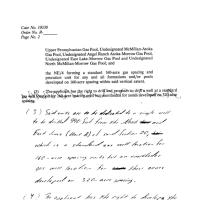 Case No. 10330
Order No. R-
Page No. 2
Upper Pennsylvanian Gas Pool, Undesignated McMillan-Atoka
Gas Pool, Undesignated Angel Ranch Atoka-Morrow Gas Pool,
Undesignated East Lake-Morrow Gas Pool and Undesignated
North McMillan-Morrow Gas Pool; and
the NE/4 forming a standard 160-acre gas spacing and
proration unit for any and all formations and/or pools
developed on 160-acre spacing within said vertical extent.
(2) The applicant has the right to drill and proposes to drill a well at a standard
(3) Said units are to be dedicated to a single well
to be drilled 990 feet from the North and
East lines (Unit A) of said Section 20,
which is a standard gas well location for
160-acre spacing units but an unorthodox
gas well location for those zones
developed on 320-acre spacing.
(4) The applicant has the right to develop the